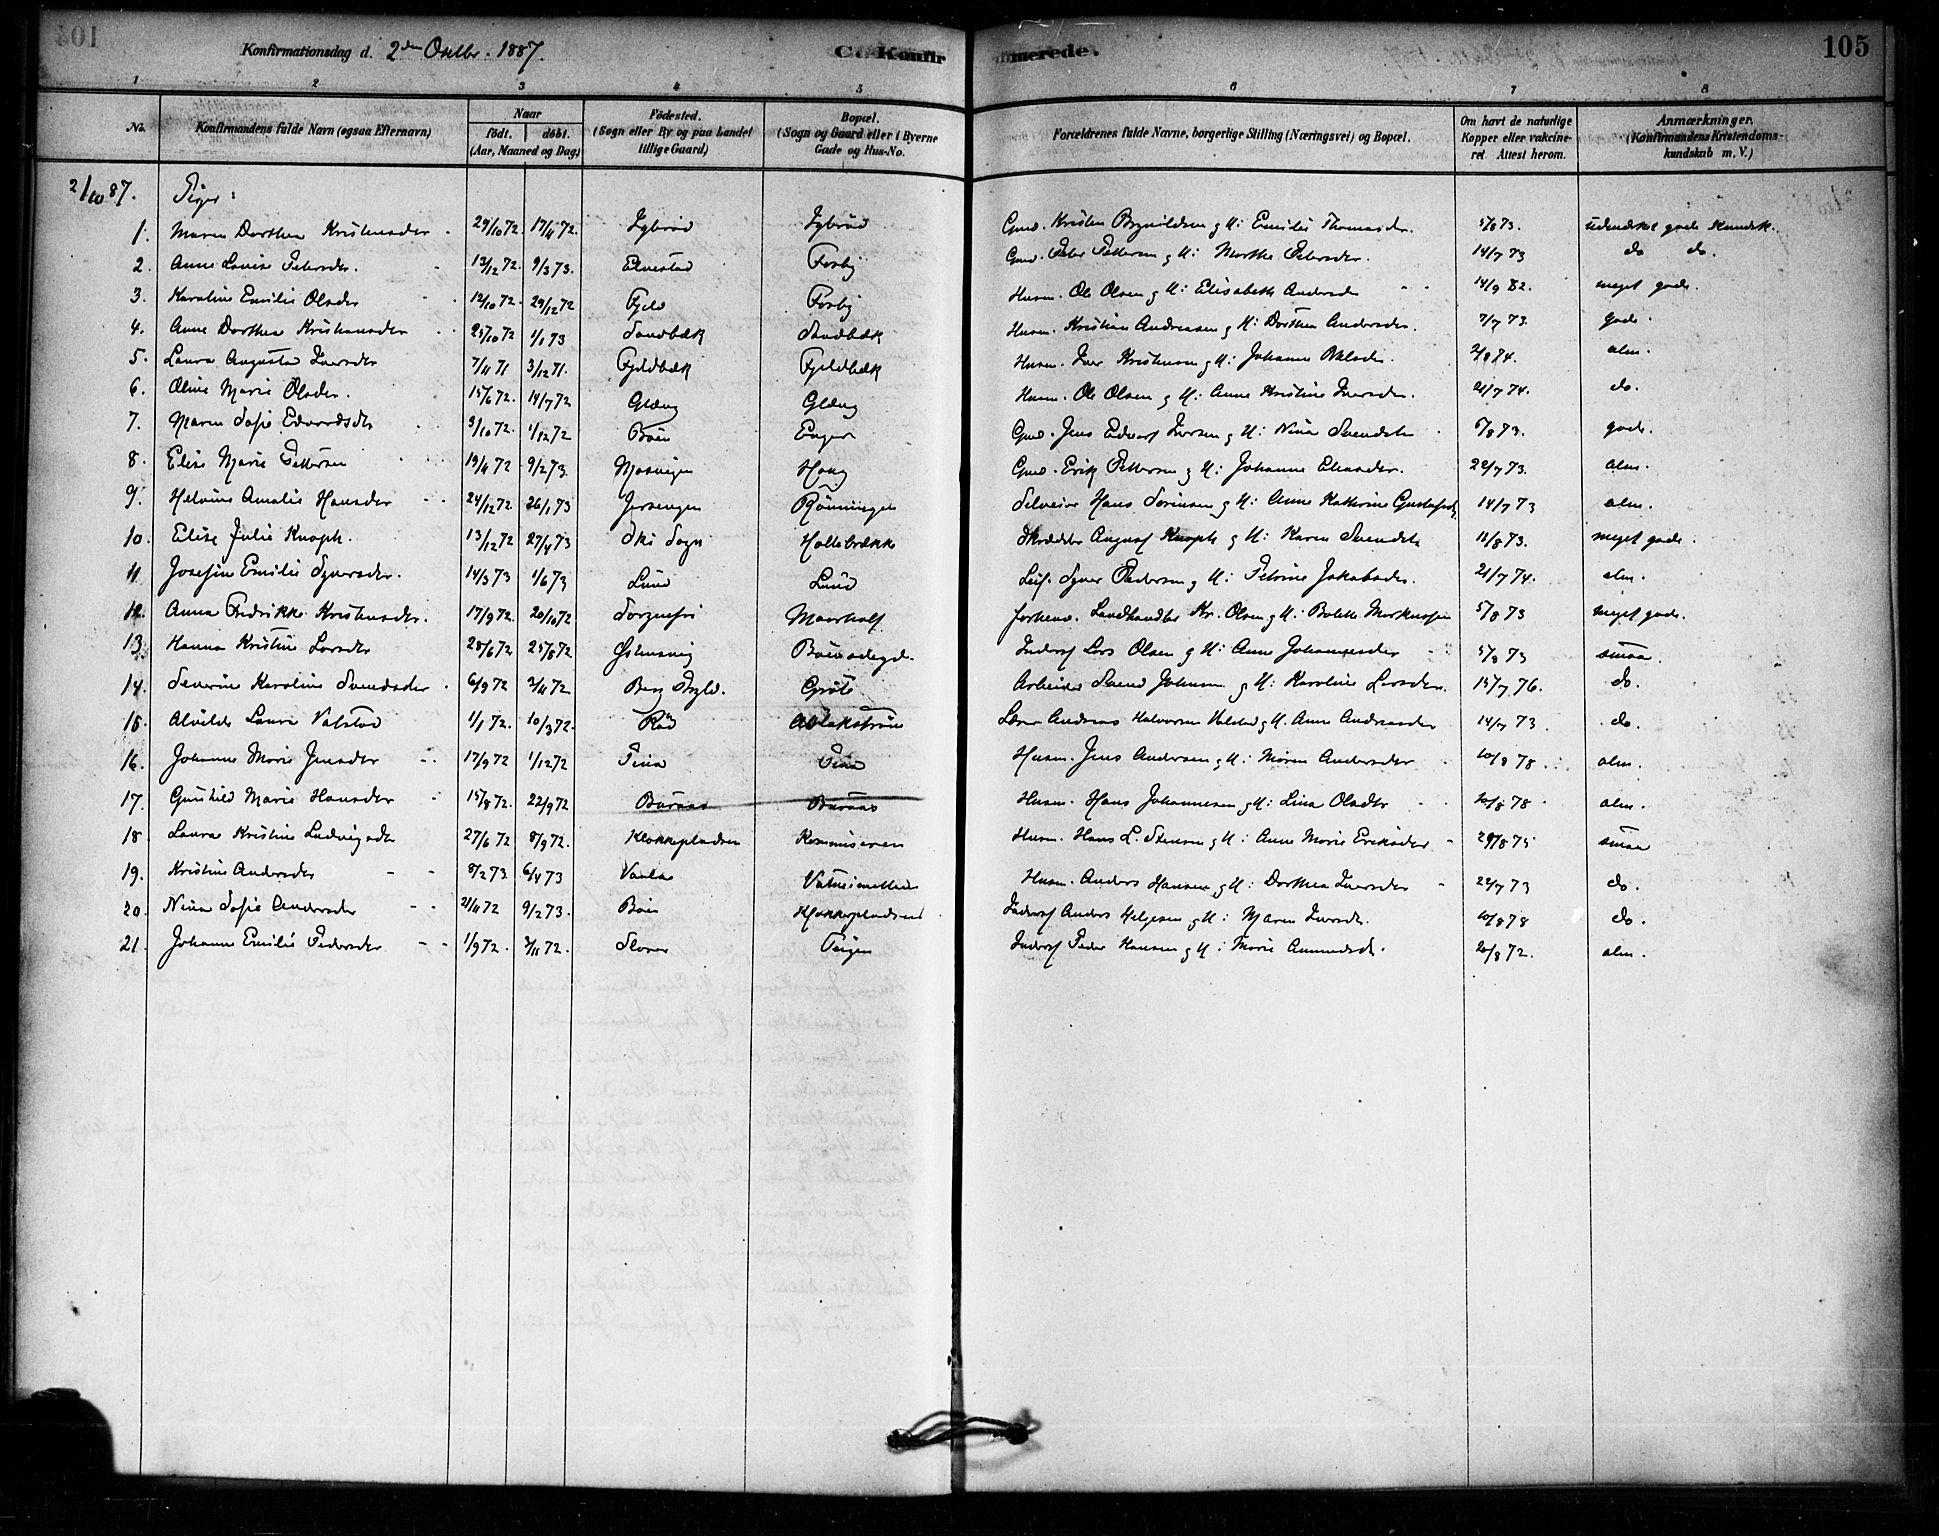 Konfirmationsdag d. 2den Oktbr. 1887. C. Konfirmerede. 105
1 2 3 4 5 6 7 8
No. Konfirmandens fulde Navn (ogsaa Efternavn) Naar födt. döbt. (Aar, Maaned og Dag) Födested. (Sogn eller By og paa Landet tillige Gaard) Bopæl. (Sogn og Gaard eller i Byerne Gade og Hus-No. Forældrenes fulde Navne, borgerlige Stilling (Næringsvei) og Bopæl. Om havt de naturlige Kopper eller vakcineret Attest herom. Anmærkninger. (Konfirmandens Kristendomskundskab m. V.)
2/10 87. Piger:
1. Maren Dorthea Kristensdr 29/10 72. 17/11 72. Gmd. Kristen Brynildsen g H: Emilie Thomasdr. 5/8 73. udmerket gode Kundsk.
2. Anne Lovise Petersdr. 12/12 72. 9/3 73. Elvestad Forby Gmd. Peter Pettersen g H: Marthe Petersdr. 14/7 73 do do.
3. Karoline Emilie Olsdr 12/10 72. 29/12 72 Fjeld Forby Husm. Ole Olsen g H: Elisabeth Andersdr 14/9 82. meget gode.
4. Anne Dorthea Kristiansdr 25/10 72 1/1 73 Sandbæk Sandbæk Husm. Kristian Andreasen g H: Dorthea Andersdr. 7/7 73. gode.
5. Laura Augusta Iversdr 7/11 71 3/12 71. Fjeldbæk Fjeldbæk Husm. Iver Kristensen g H: Johanne 2/8 74. alm.
6. Oline Marie Olsdr. 15/6 72. 14/7 72 Gläng Gläng Husm. Ole Olsen g H: Anne Kristine Iversdr. 21/7 74. do.
7. Maren Sofie Edvardsdtr 3/10 72. 1/12 72 Böen Enger Gmd. Jens Edvard Iversen g H: Nina Svendsdtr 5/8 73. gode.
8. Elise Marie Pettersen 19/4 72 9/2 73. Mosvigen Haug Gmd. Erik Pettersen g H: Johanne 22/7 73. alm.
9. Helvine Amalie Hansdr 24/12 72 26/1 73 Jersengen Rönningen Selveier Hans Sörensen g H: Anne Kathrine Gustafsdtr 14/7 73 alm.
10. Elise Julie Knoph. 13/12 72 27/4 73 Ski Sogn Hollebrække Skrædder August Knoph g H: Karen Svendsdtr 18/8 73. meget gode.
11. Josefine Emilie Syversdr. 14/3 73 1/6 73 Lund Lund Leil. Syver Pedersen g H: Petrine Jakobsdr. 21/7 74. alm.
12. Anna Fredrikke Kristensdr. 17/9 72. 20/10 72 Sorgenfri Maarhalf Forhenv. Landhandler Kr. Olsen g H: Bolette 5/8 73 meget gode.
13. Hanna Kristine Larsdr 28/6 72 25/8 72 Östensvig Inderst Lars Olsen g H: Anne Johannesdr 5/8 73 smaa.
14. Severine Karoline Svendsdtr. 6/9 72 3/11 72 Berg Prgld. Gröte Arbeider Svend Johnsen g H: Karoline Larsdr. 15/7 76. do.
15. Alvilde Laura Valstad 1/1 72. 10/3 72. Röd Lærer Andreas Halvorsen Valstad g H. Anne Andreasdr 14/7 73 do.
16. Johanne Marie Jensdtr 17/9 72 1/12 72 Husm. Jens Andersen g H: Maren Andersdr 10/8 78. alm.
17. Gunhild Marie Hansdtr 15/8 72. 22/9 72 Buraas Buraas Husm. Hans Johannesen g H: Lina Olsdtr 10/8 78. alm.
18. Laura Kristine Ludvigsdtr 27/6 72 8/9 72. Klokkepladsen Husm. Hans L. g H: Anne Marie Eriksdtr 29/8 75 smaa
19. Kristine Andersdtr 8/2 73 6/4 73 Husm. Anders Hansen g H: Dorthea Iversdtr 22/7 73 do.
20. Nina Sofie Andersdtr 21/11 72 9/2 73. Böen Klokkepladsen Inderst Anders Helgesen g H: Maren Iversdtr. 10/8 78 do.
21. Johanne Emilie Pedersdtr 1/9 72. 3/11 72. Inderst Peder Hansen g H: Marie Amundsdtr. 20/8 72. alm.